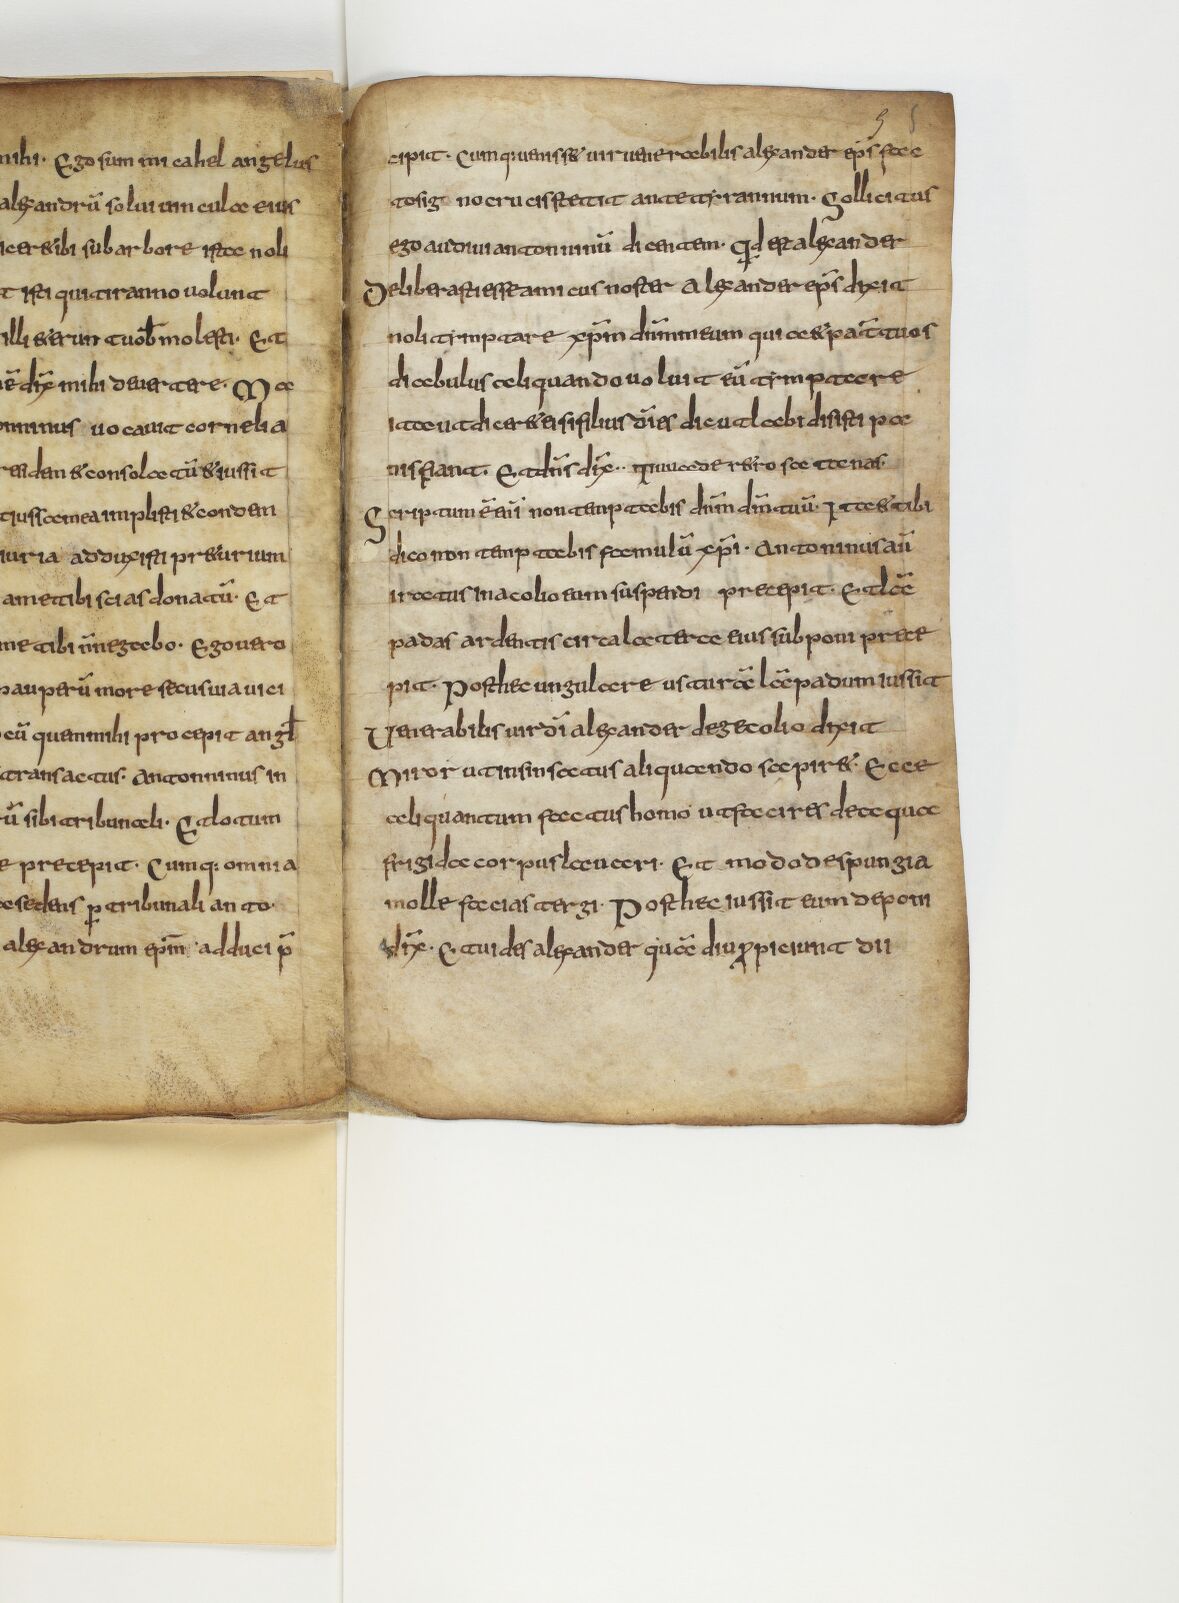 mihi. Ego sum micahel angelus
alexandrũ solui uincula eius
icer& ibi sub arbore ista noli
t isti qui tiranno uolunt
illi & erunt uob molesti. Et
ẽ dix̃ mihi deuertere. Ma
onninus uocauit cornelia
reiden & consolatũ & iussit
t iussa mea implisti & conden
iuria adduxisti preturium
a me tibi scias donatũ. Et
me tibi nñ negabo. Ego uero
pauperũ more secus uia uici
cũ quem mihi procepit angl
transactus. Antonninus in
rũ sibi tribunali. Et lotum
e precepit. Cumq: omnia
e sedens p tribunali anto
alexandrum epm̃ adduci p̃
5 5
cipit. Cumq: ueniss& uir uenerabilis alexander ep̃s fac
to signo crucis stetit ante tyrannum. Sollicitus
ego audiui antonninũ dicentem. Qd est alexander
Deliberasti esse amicus noster Alexander ep̃s dixit
noli temptare xp̃m dñm meum quia & pat̃ tuos
diabulus aliquando uoluit eũ temptare
ita ut dicer& ei si filius dĩ es dic ut labidi isti pa
nis fiant. Et dñs dix̃.. uade r&ro satanas.
Scriptum ẽ eni non temptabis dñm dm̃ tuũ. Ita & tibi
dico non temptabis famulũ xp̃i. Antoninus aũ
iratus in acolio eum suspendi precepit. Et lã
padas ardentis circa latera eius subponi prece
pit. Post hec ungulare usturã lãpadum iussit
Uenerabilis uir dĩ alexander de gecolio dixit
Miror ut insinsatus aliquando sapir&. Ecce
aliquantum factus homo ut facires de aqua
frigida corpus lauari. Et modo de spungia
molle facias tergi. Post hec iussit eum deponi
dix̃. Et uides alexander quã diu ꝓpiciunt dii